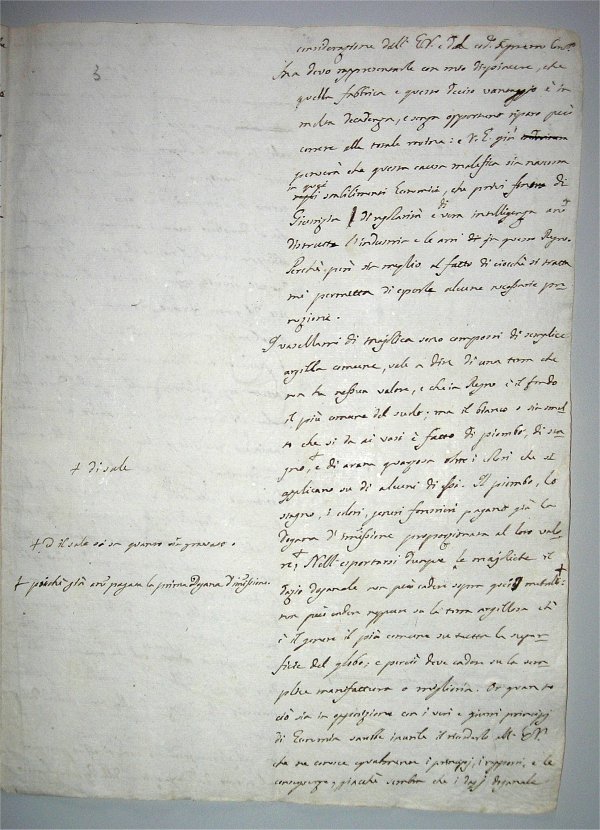 3
considerazione dall' E.V. e dal
Ma devo rappresentarle con mio dispiacere, che
quella fabbrica e questo deciso vantaggio è in
molta decadenza, e senza opportuno riparo può
correre alla totale rovina: e V.E. già
penserà che questa causa malefica sia nascosa
in quegli
stabilimenti Economici, che privi di
Giustizia di regolarità e di vera intelligenza
distrutte l'industria e le arti in questo Regno.
Perchè però sia meglio al fatto di ciocchè si tratta
mi permetta di esporle alcune necessarie pre-
I vasellami di majolica sono composti di semplice
argilla comune, vale a dire di una terra che
non ha nessun valore, e che in Regno è il fondo
il più comune del suolo; ma il bianco o sia smal-
to che si da ai vasi è fatto di piombo, di sta-
gno, + e di arena quarzosa oltre i colori che si
applicano su di alcuni di essi. Il piombo, lo
stagno, i colori, generi forestieri pagano già la
dogana d'immissione proporzionata al loro valo-
re+. Nell'esportarsi dunque le majoliche il
dazio doganale non può cadere sopra questi metalli +:
non può cadere neppure su la terra argillosa ch'
è il genere il più comune su tutta la super-
ficie del globo, e perciò deve cadere su la sem-
plice manifattura o miglioria. Or quanto
ciò sia in opposizione con i veri e giusti principj
di Economia sarebbe inutile il ricordarlo all' E.V.
che ne conosce egualmente i principj, i rapporti, e le
conseguenze, giacchè sembra che i dazj doganali
+ di sale
+ e il sale si sa quanto sia gravato.
+ poichè già han pagata la prima dogana d'immissione.